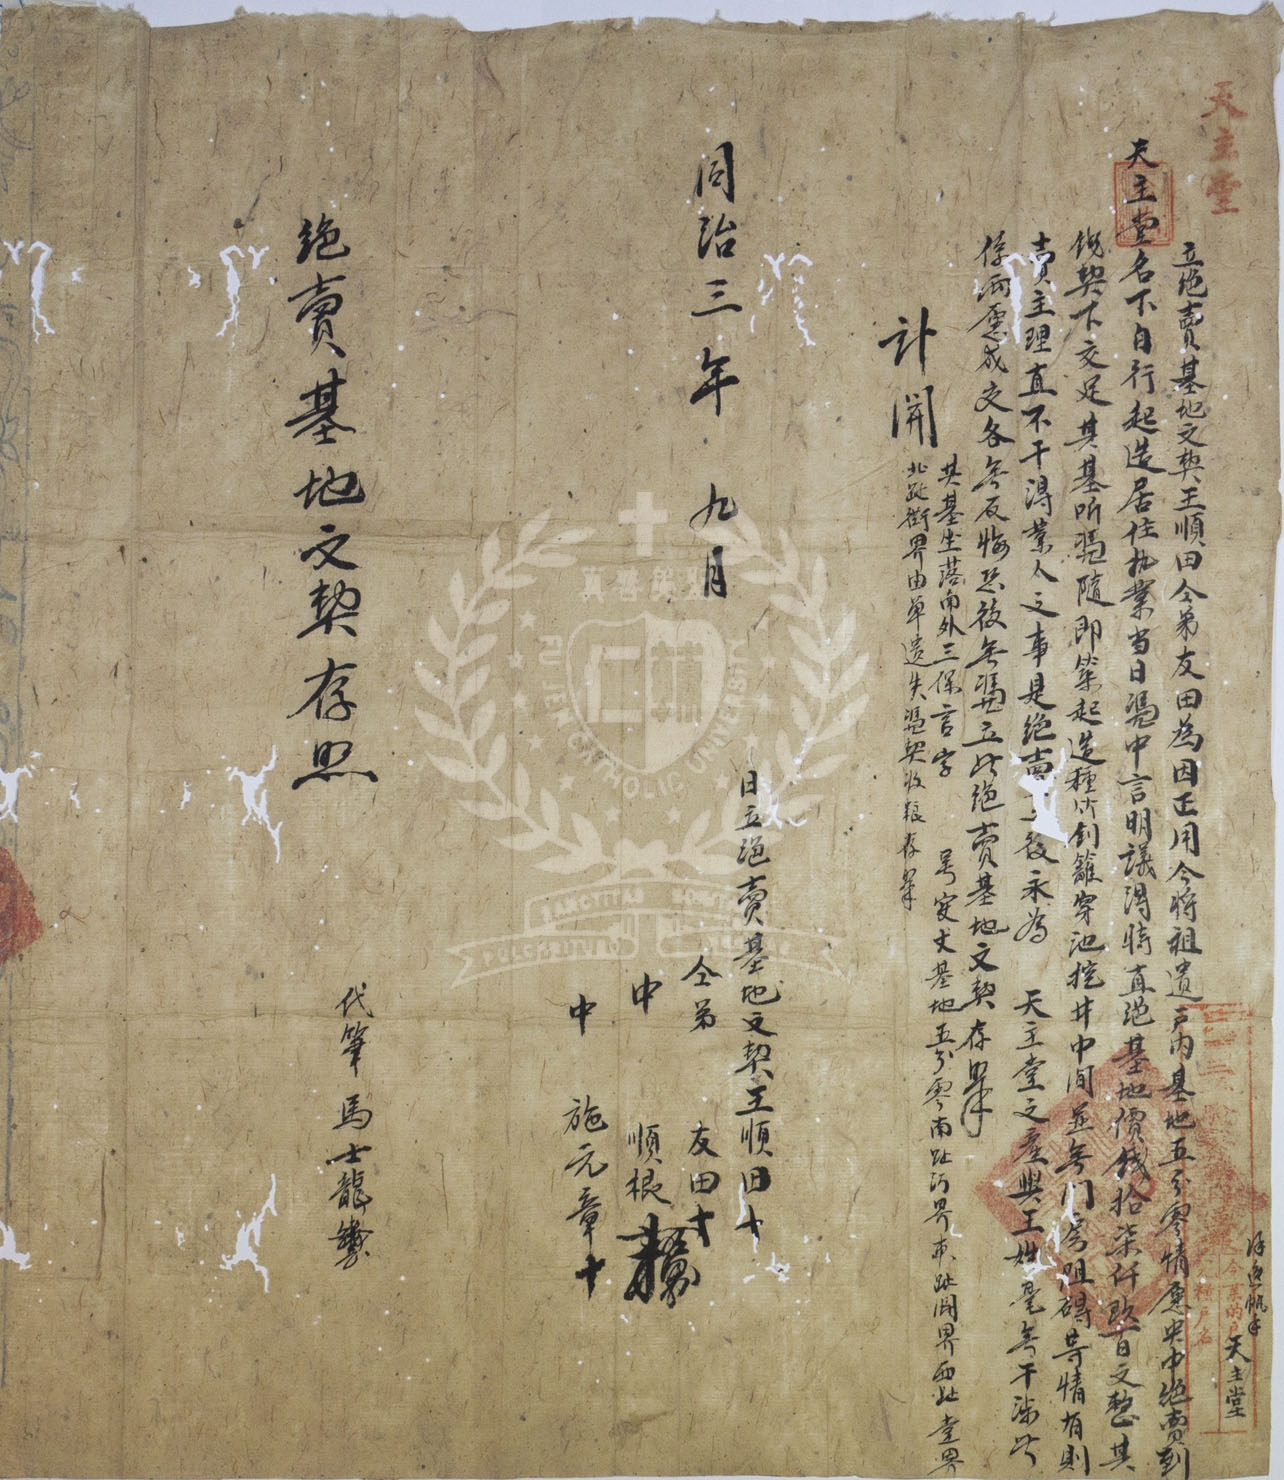 天主堂
立絕賣基地文契王順田仝弟友田為因正用今將祖遺戶內基地五分零情愿央中絕賣到
天主堂名下自行起造居住执業当日憑中言明議得時直絕基地價錢拾柒仟玖百文整其
錢契下交足其基听憑隨即築起造種竹釘籬穿池挖井中间並無门房阻碍等情有則
賣主理直不干得業人之事是絕賣之後永為 天主堂之產與王姓毫無干涉此
係兩愿成交各無反悔恐後無憑立此絕賣基地文契存照
計開
其基坐落南外三保言字 号定丈基地五分零南趾河界東趾開界西趾堂界
北趾街界由单遺失憑契收粮存照
同治三年 九月
日立絕賣基地文契王順田十
仝弟 友田十
中 順根
中 施元章十
代筆馬士龍
絕賣基地文契存照
天主堂
今業的戶
糧戶名
FU JEN CATHOLIC UNIVERSITY